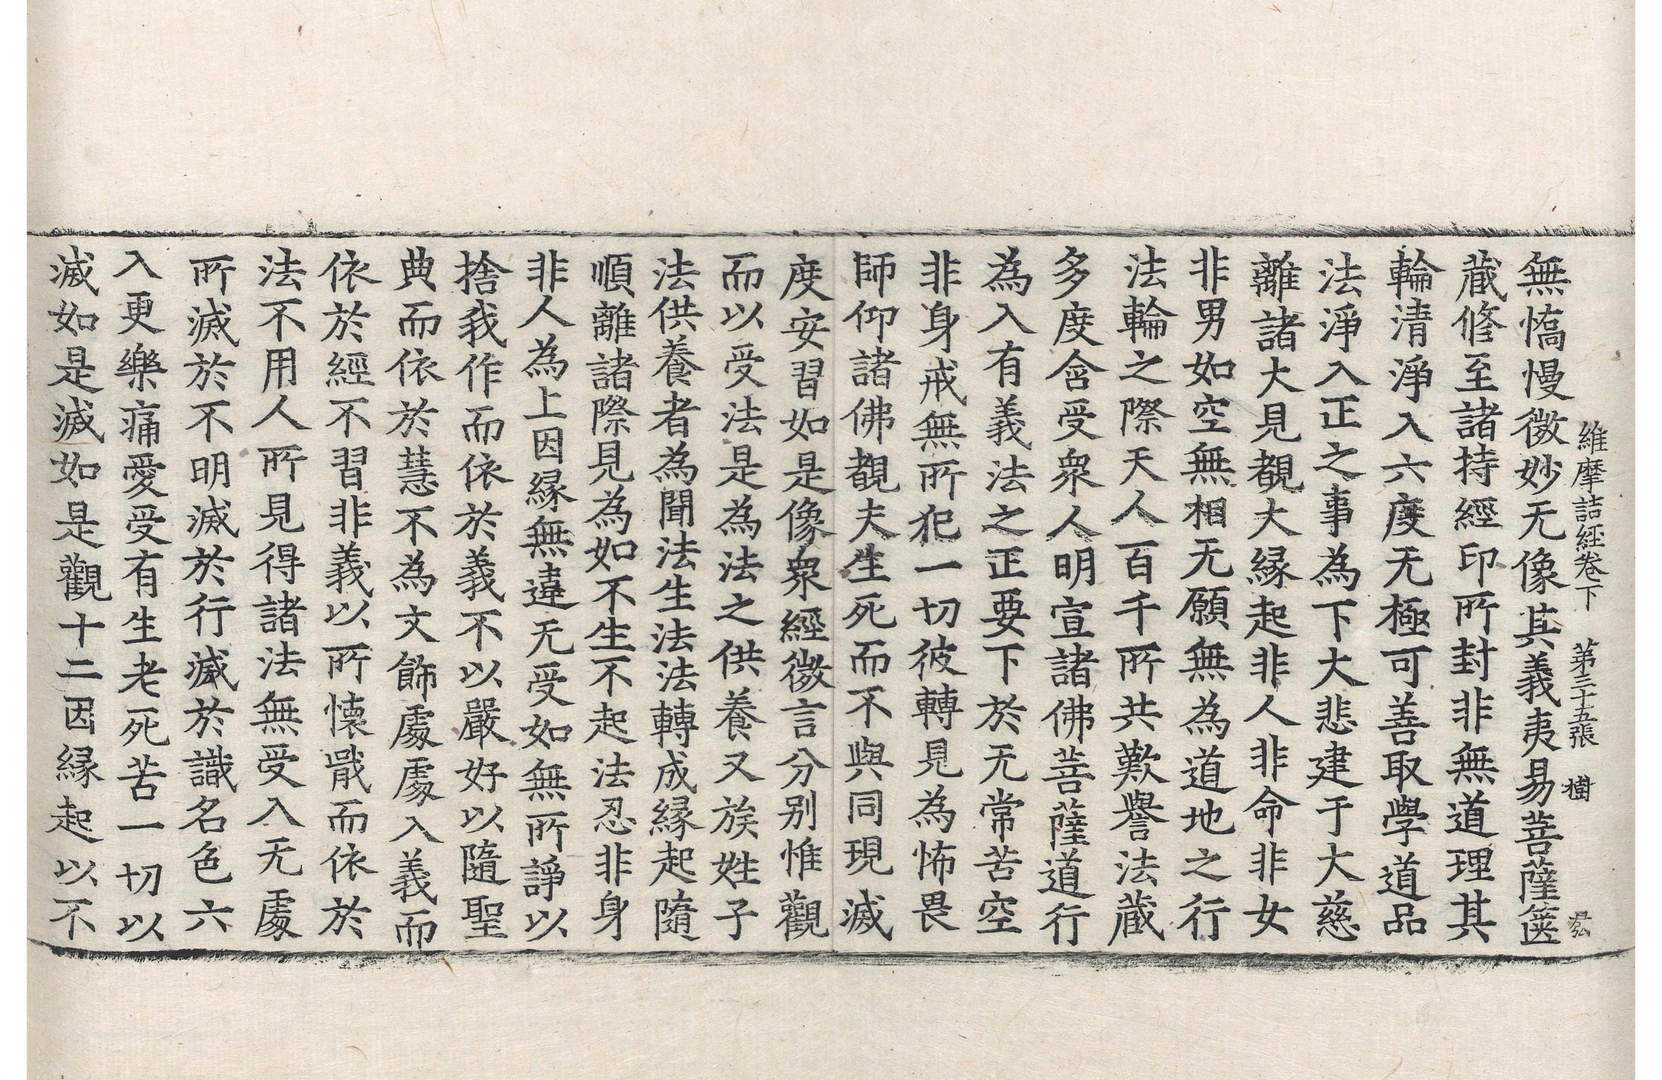 維摩詰經卷下　第三十五張　樹
無憍慢微妙无像其義夷易菩薩篋
藏修至諸持經印所封非無道理其
輪清淨入六度无極可善取學道品
法淨入正之事為下大悲建于大慈
離諸大見覩大縁起非人非命非女
非男如空無相无願無為道地之行
法輪之際天人百千所共歎譽法藏
多度含受衆人明宣諸佛菩薩道行
為入有義法之正要下於无常苦空
非身戒無所犯一切彼轉見為怖畏
師仰諸佛覩夫生死而不與同現滅
度安習如是像衆經微言分別惟觀
而以受法是為法之供養又族姓子
法供養者為聞法生法法轉成縁起隨
順離諸際見為如不生不起法忍非身
非人為上因縁無違无受如無所諍以
捨我作而依於義不以嚴好以隨聖
典而依於慧不為文飾處處入義而
依於經不習非義以所懐戢而依於
法不用人所見得諸法無受入无處
所滅於不明滅於行滅於識名色六
入更樂痛愛受有生老死苦一切以
滅如是滅如是觀十二因縁起以不